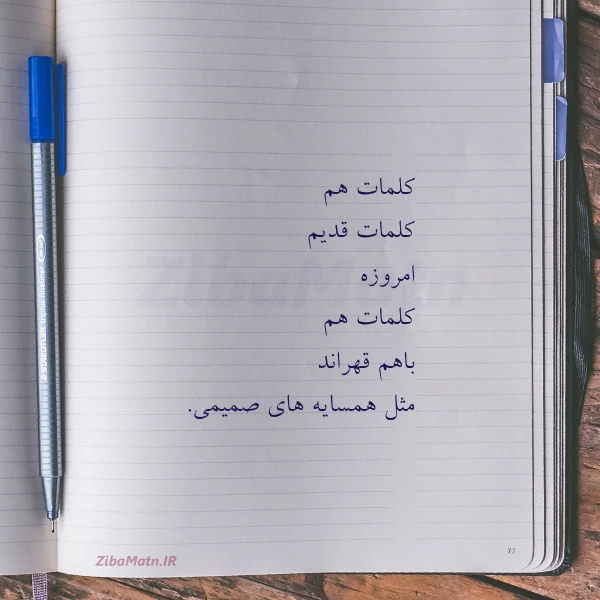 کلمات هم
کلمات قدیم
امروزه
کلمات هم
باهم قهراند
مثل همسایه های صمیمی.
ZibaMatn
ZibaMatn.IR